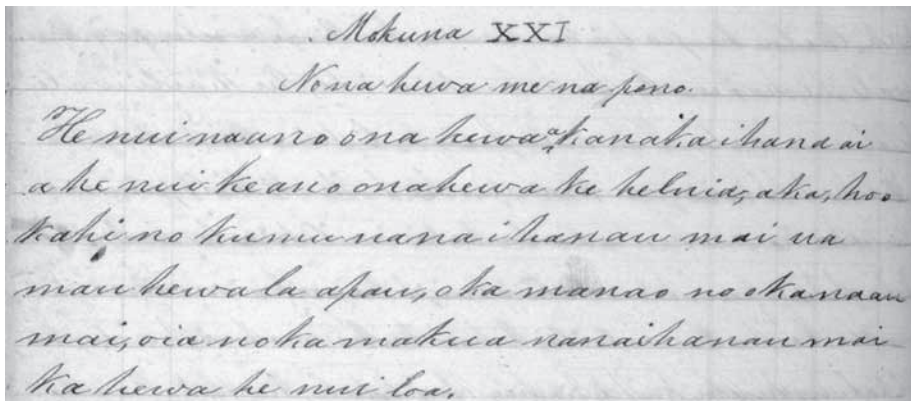 Mokuna XXI
No na hewa me na pono.
He nui na ano o na hewa a kanaka i hana ai
a he nui ke ano o na hewa ke heluia, aka, hoo
kahi no kumu nana i hanau mai ua
mau hewa la apau, o ka manao no o ka naau
mai, oia no ka makua nana i hanau mai
ka hewa he nui loa.